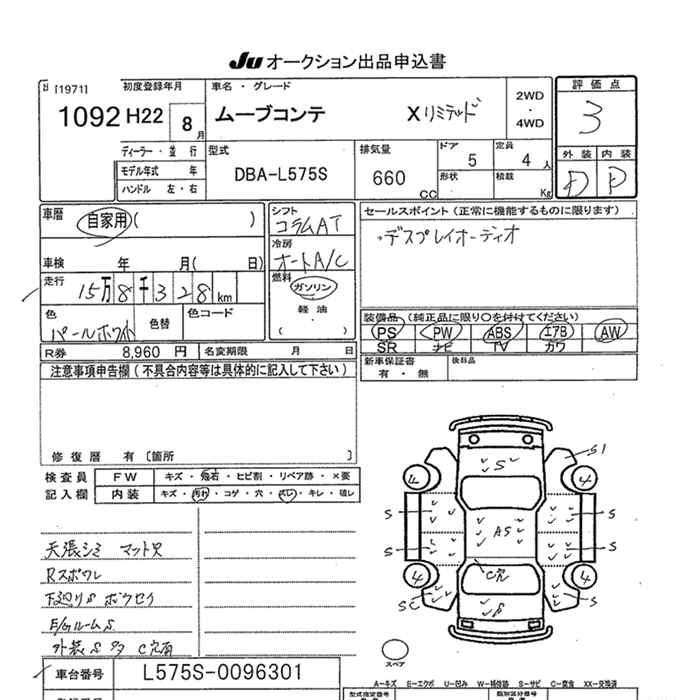 Ju オークション出品申込書
[1971]
1092
初度登録年月
H22 8月
車名・グレード
ムーブコンテ Xリミテッド
2WD・4WD
評価点
3
ディーラー・並行
モデル年式 年
ハンドル 左・右
型式
DBA-L575S
排気量
660 CC
ドア 5
定員 4人
形状
積載 Kg
外装 内装
D D
車歴 自家用( )
車検 年 月( 日)
走行 15万8千328km
色 パールホワイト
色替
色コード
シフト
コラムAT
冷房
オートA/C
燃料
ガソリン
軽油
( )
セールスポイント(正常に機能するものに限ります)
・デスプレイオーディオ
装備品(純正品に限り○を付けてください)
PS PW ABS エアB AW
SR ナビ TV カワ
R券 8,960 円 名変期限 月 日
新車保証書 有・無
後日品
注意事項申告欄(不具合内容等は具体的に記入して下さい)
修復歴 有〔箇所 〕
検査員記入欄
FW キズ・飛石・ヒビ割・リペア跡・×要
内装 キズ・汚れ・コゲ・穴・スレ・キレ・破レ
天張シミ マット穴
Rスポワレ
下廻りS ボウセイ
E/GルームS
外装S多 C穴有
S
S1
4 4
S S
AS
S S
C穴
4 4
SC S
S
スペア
車台番号 L575S-0096301
A-キズ E-エクボ U-凹み W-補修跡 S-サビ C-腐食 XX-交換済
型式指定番号 類別区分番号